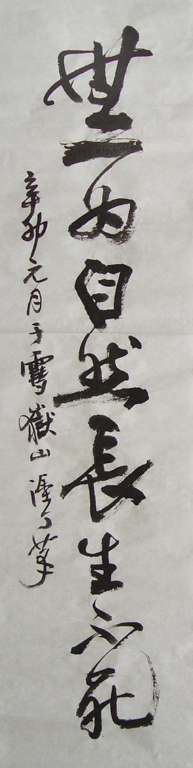 無為自然長生不死
辛卯元月于雪嶽山